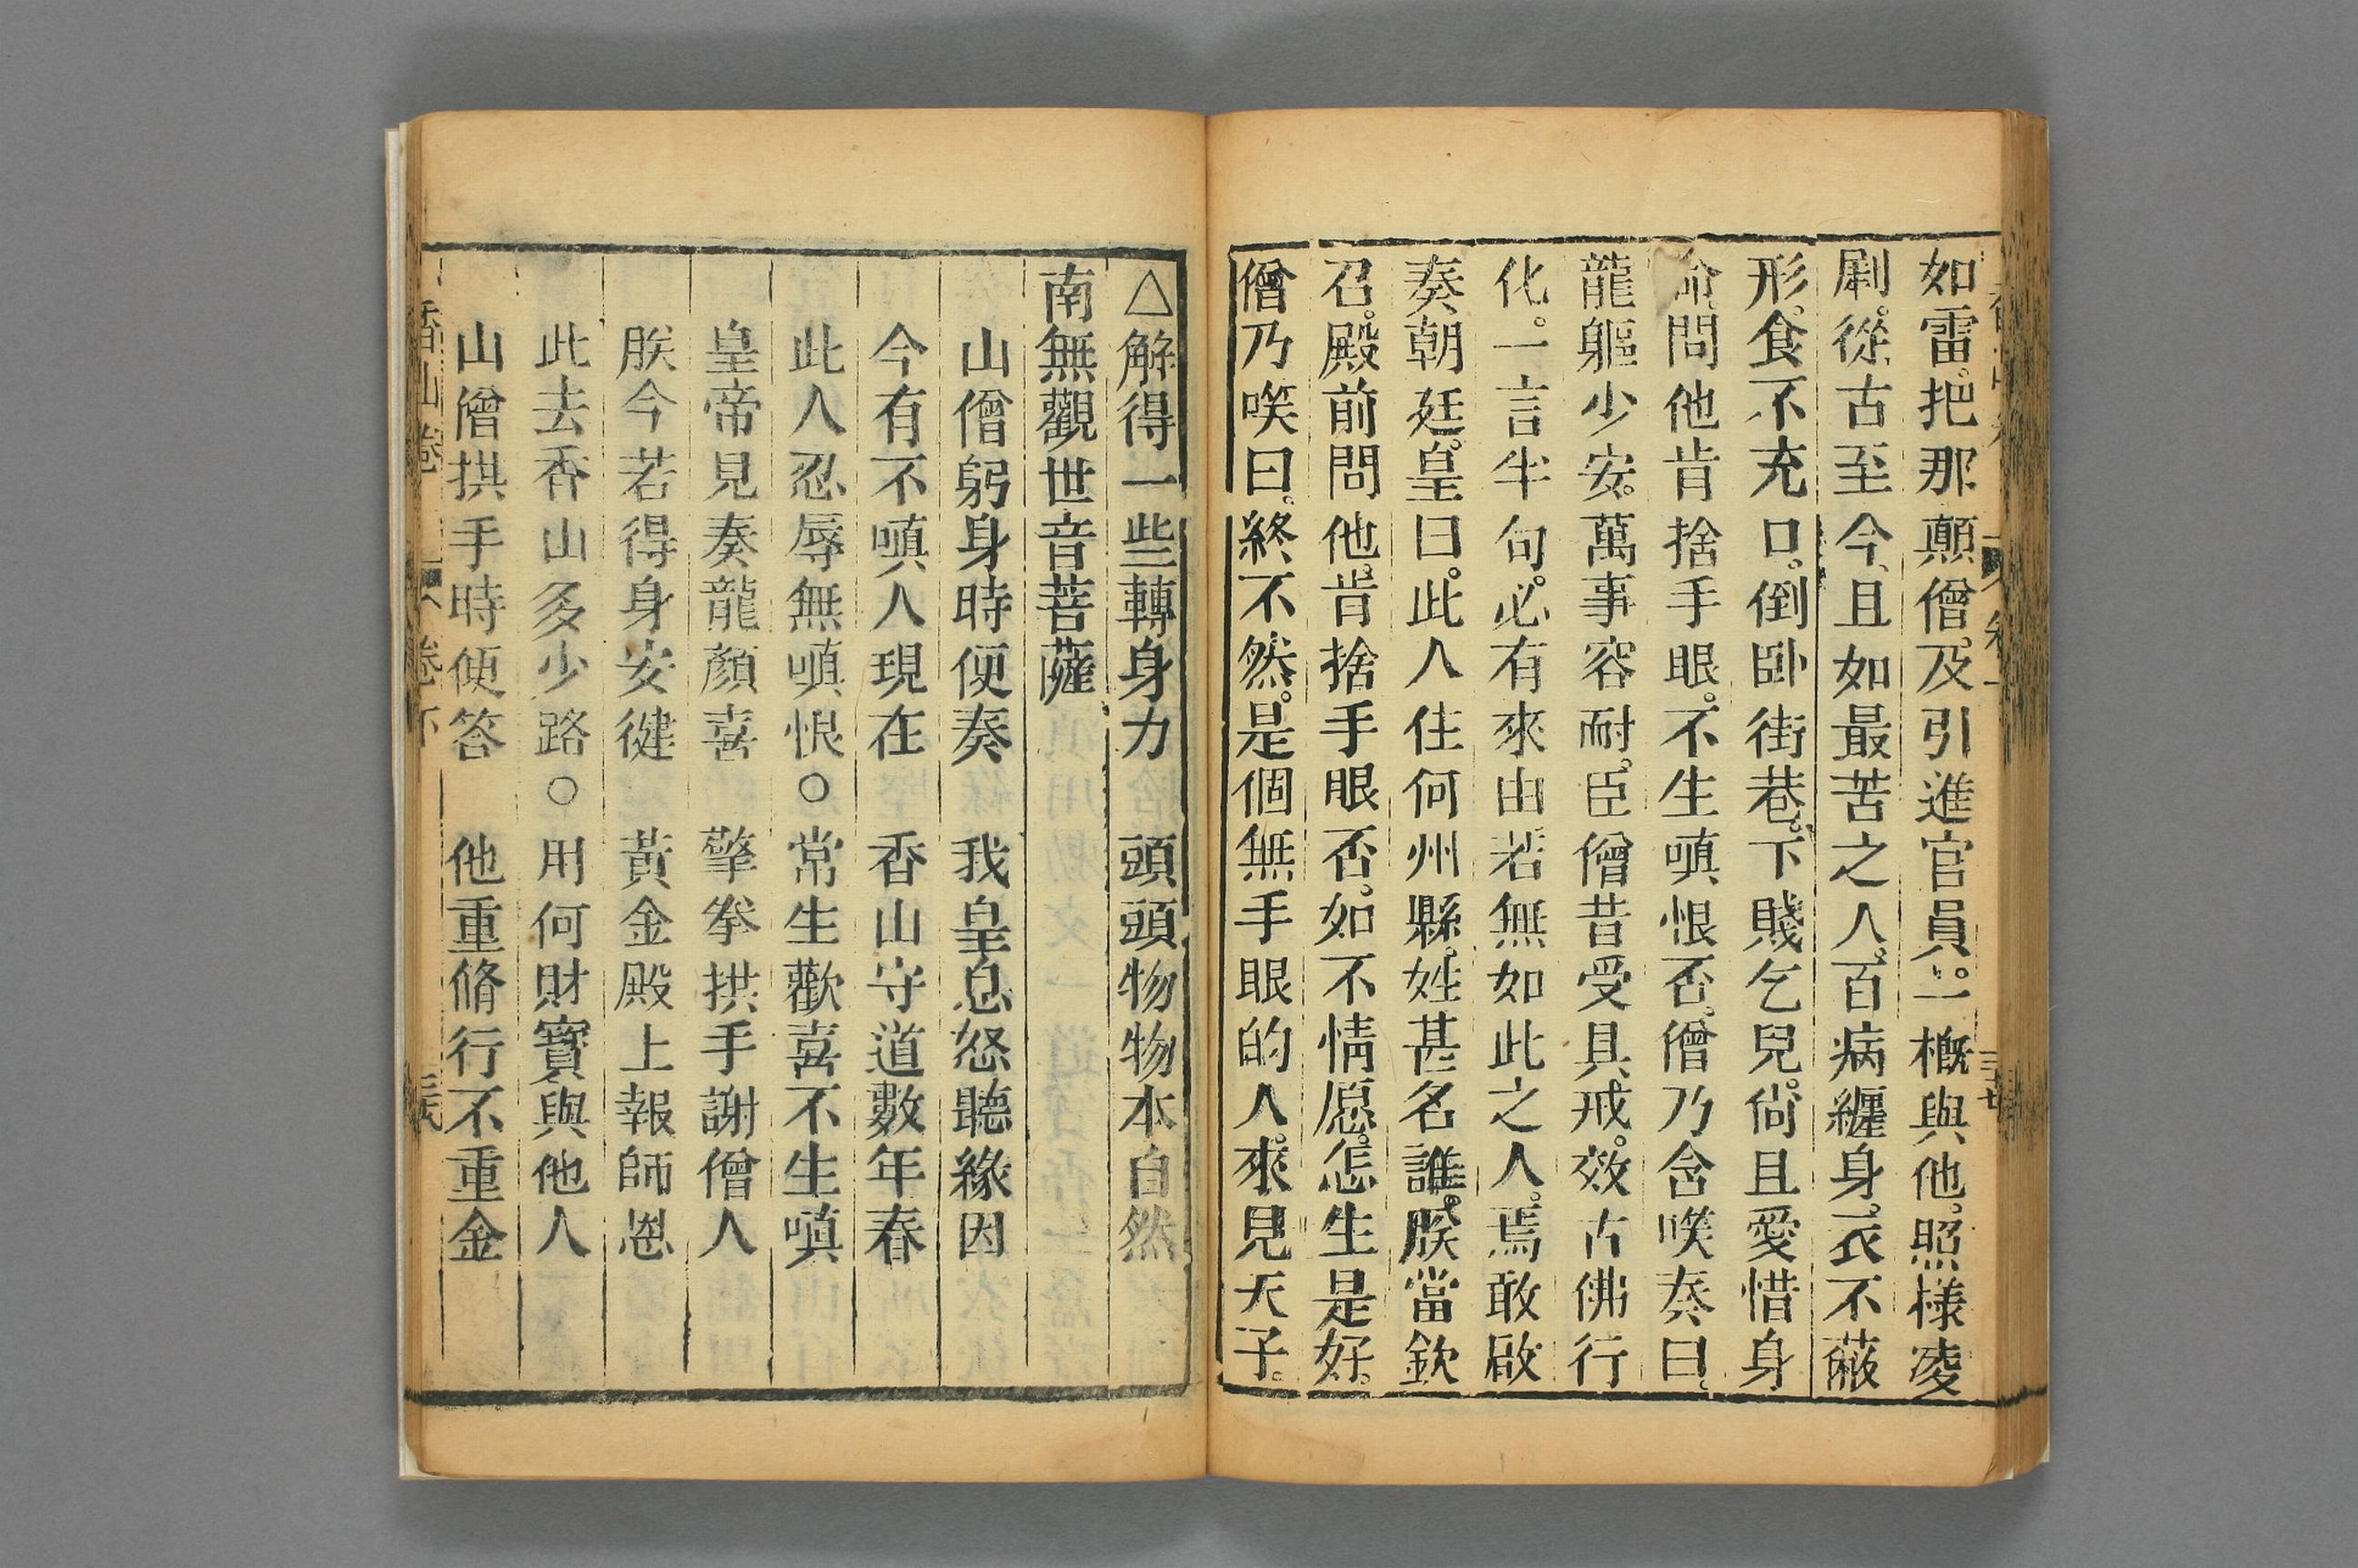 如雷。把那顛僧。及引進官員。一槪與他。照樣凌
剮。從古至今。且如最苦之人。百病纏身。衣不蔽
形。食不充口。倒卧街巷。下賤乞兒。尙且愛惜身
命。問他肯捨手眼。不生嗔恨否。僧乃含唉奏曰。
龍軀少安。萬事容耐。臣僧昔受具戒。效古佛行
化。一言半句。必有來由。若無如此之人。焉敢啟
奏朝廷。皇曰。此人住何州縣。姓甚名誰。朕當欽
召。殿前問他。肯捨手眼否。如不情愿。怎生是好。
僧乃唉曰。終不然。是個無手眼的人。來見天子。
△解得一些轉身力　頭頭物物本自然
南無觀世音菩薩
山僧躬身時便奏　我皇息怒聽緣因
今有不嗔人現在　香山守道數年春
此人忍辱無嗔恨○常生歡喜不生嗔
皇帝見奏龍顏喜　擎拳拱手謝僧人
朕今若得身安健　黃金殿上報師恩
此去香山多少路○用何財寶與他人
山僧拱手時便答　他重脩行不重金
香山卷　卷下